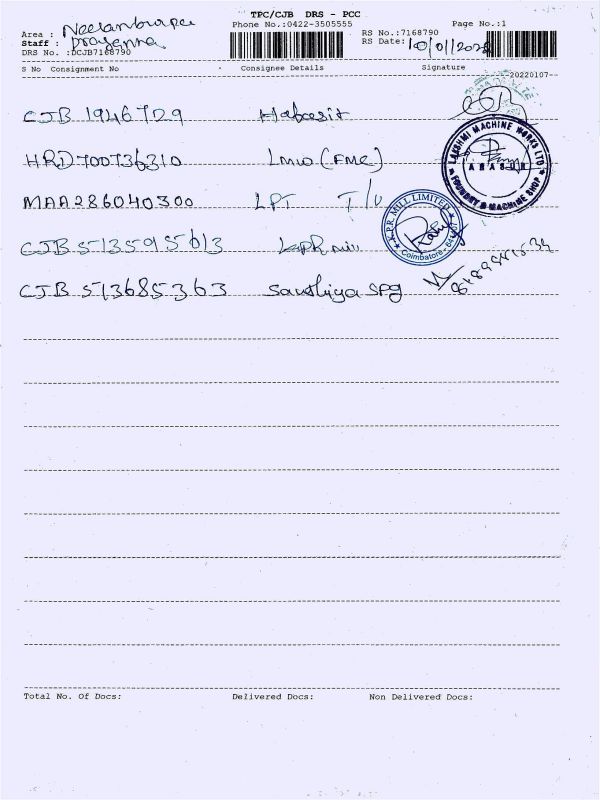 TPC/CJB DRS - PCC
Phone No.:0422-3505555
Page No.:1
Area : Neelambur
Staff :
DRS No. :DCJB7168790
RS No.:7168790
RS Date: 10/01/2022
S No Consignment No Consignee Details Signature
20220107
CJB 1946729 Habasit
HRD700736310 LMW (FMC)
MAA286040300 LPT T/U
CJB 513595613 KPR mill
CJB 513685363 Spg
LAKSHMI MACHINE WORKS LTD
ARASUR
FOUNDRY & MACHINE SHOP
K.P.R. MILL LIMITED
Coimbatore
Total No. Of Docs: Delivered Docs: Non Delivered Docs: